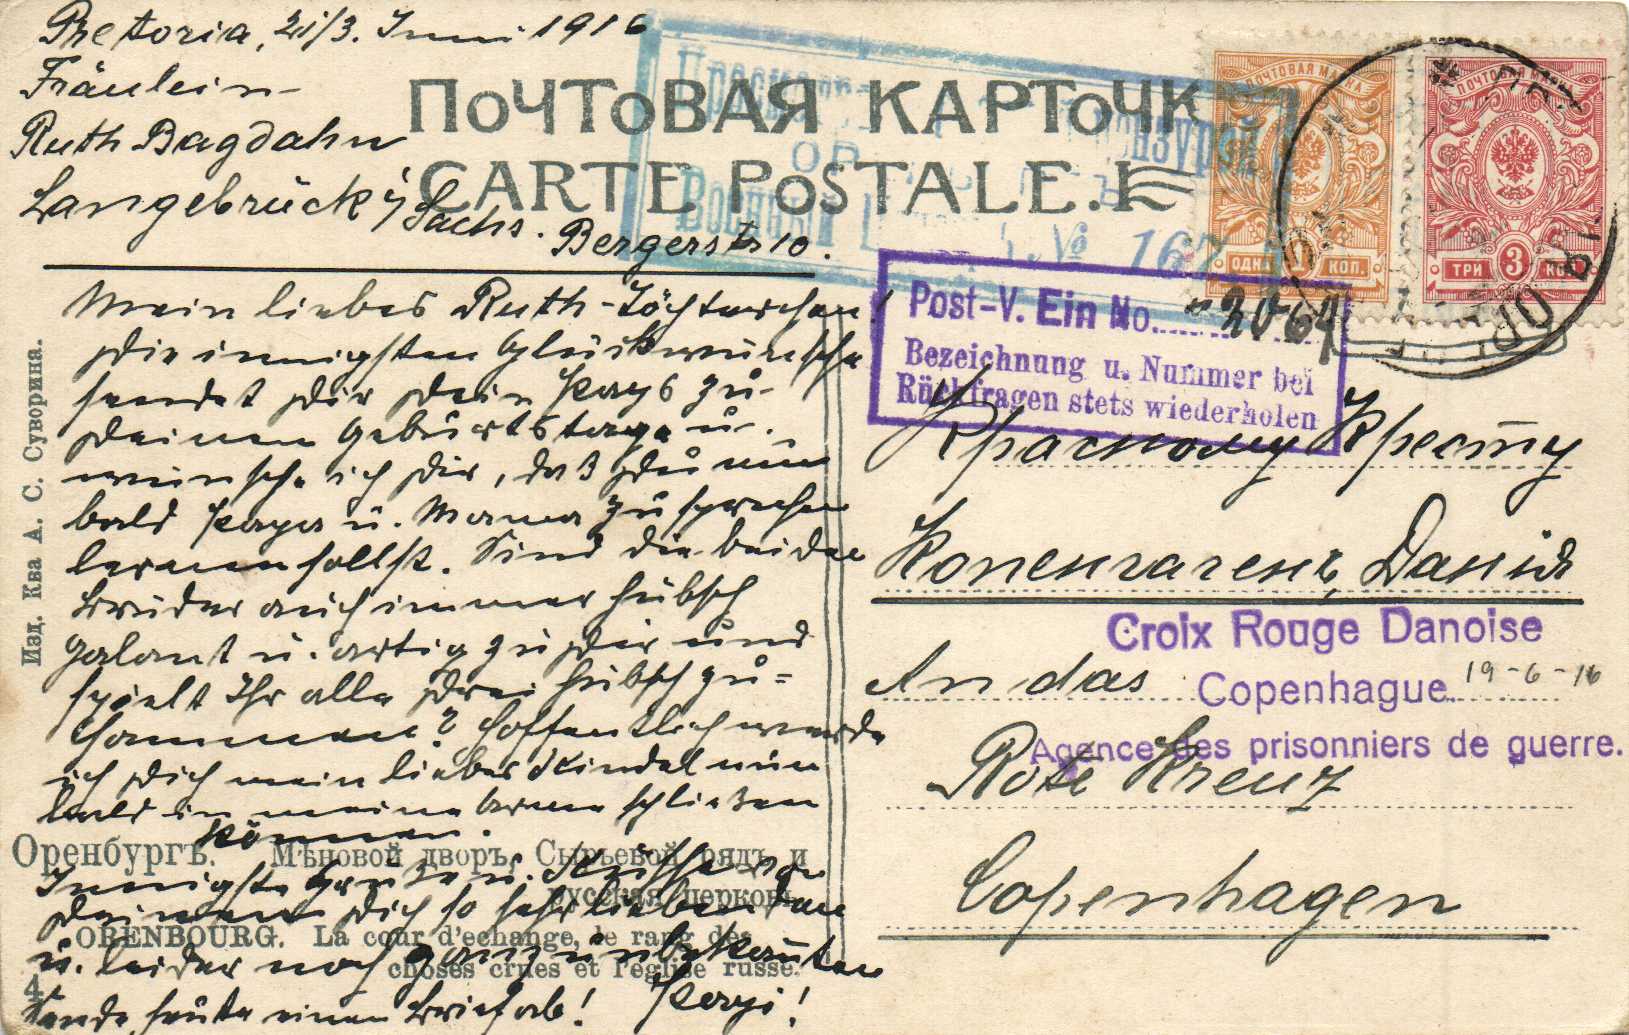 Pretoria, 21/3. Juni 1916
Fräulein
Ruth Bagdahn
Langebrück i/Sachs. Bergerstr 10.
ПОЧТОВАЯ КАРТОЧК
CARTE POSTALE.
Военный
№ 167
ПОЧТОВАЯ МАРКА
ОДНА 1 КОП.
ПОЧТОВАЯ МАРКА
ТРИ 3 КОП.
Post-V. Ein No. 2064
Bezeichnung u. Nummer bei
Rückfragen stets wiederholen
Mein liebes Ruth-Töchterchen!
Die innigsten Glückwünsche
sendet Dir Dein Papi zu
Deinem Geburtstage u.
wünsche ich Dir, daß Du nun
bald Papa u. Mama zu sprechen
lernen sollst. Sind die beiden
Brüder auch immer hübsch
galant u. artig zu Dir und
spielt Ihr alle Drei hübsch zu-
sammen? Hoffentlich werde
ich Dich mein liebes Kindel nun
bald in meine Arme schließen
können.
Innigste Grüße u. Küsse von
Deinem Dich so sehr liebenden
u. leider noch ganz unbekannten
Papi!
Sende heute einen Brief ab!
Изд. Ква А. С. Суворина.
Оренбургъ. Мѣновой дворъ, Сырьевой рядъ и
русская церковь.
ORENBOURG. La cour d'echange, le rang des
choses crues et l'eglise russe.
4
Красному Кресту
Копенгагенъ, Данія
Croix Rouge Danoise
Copenhague 19-6-16
Agence des prisonniers de guerre.
An das
Rote Kreuz
Copenhagen